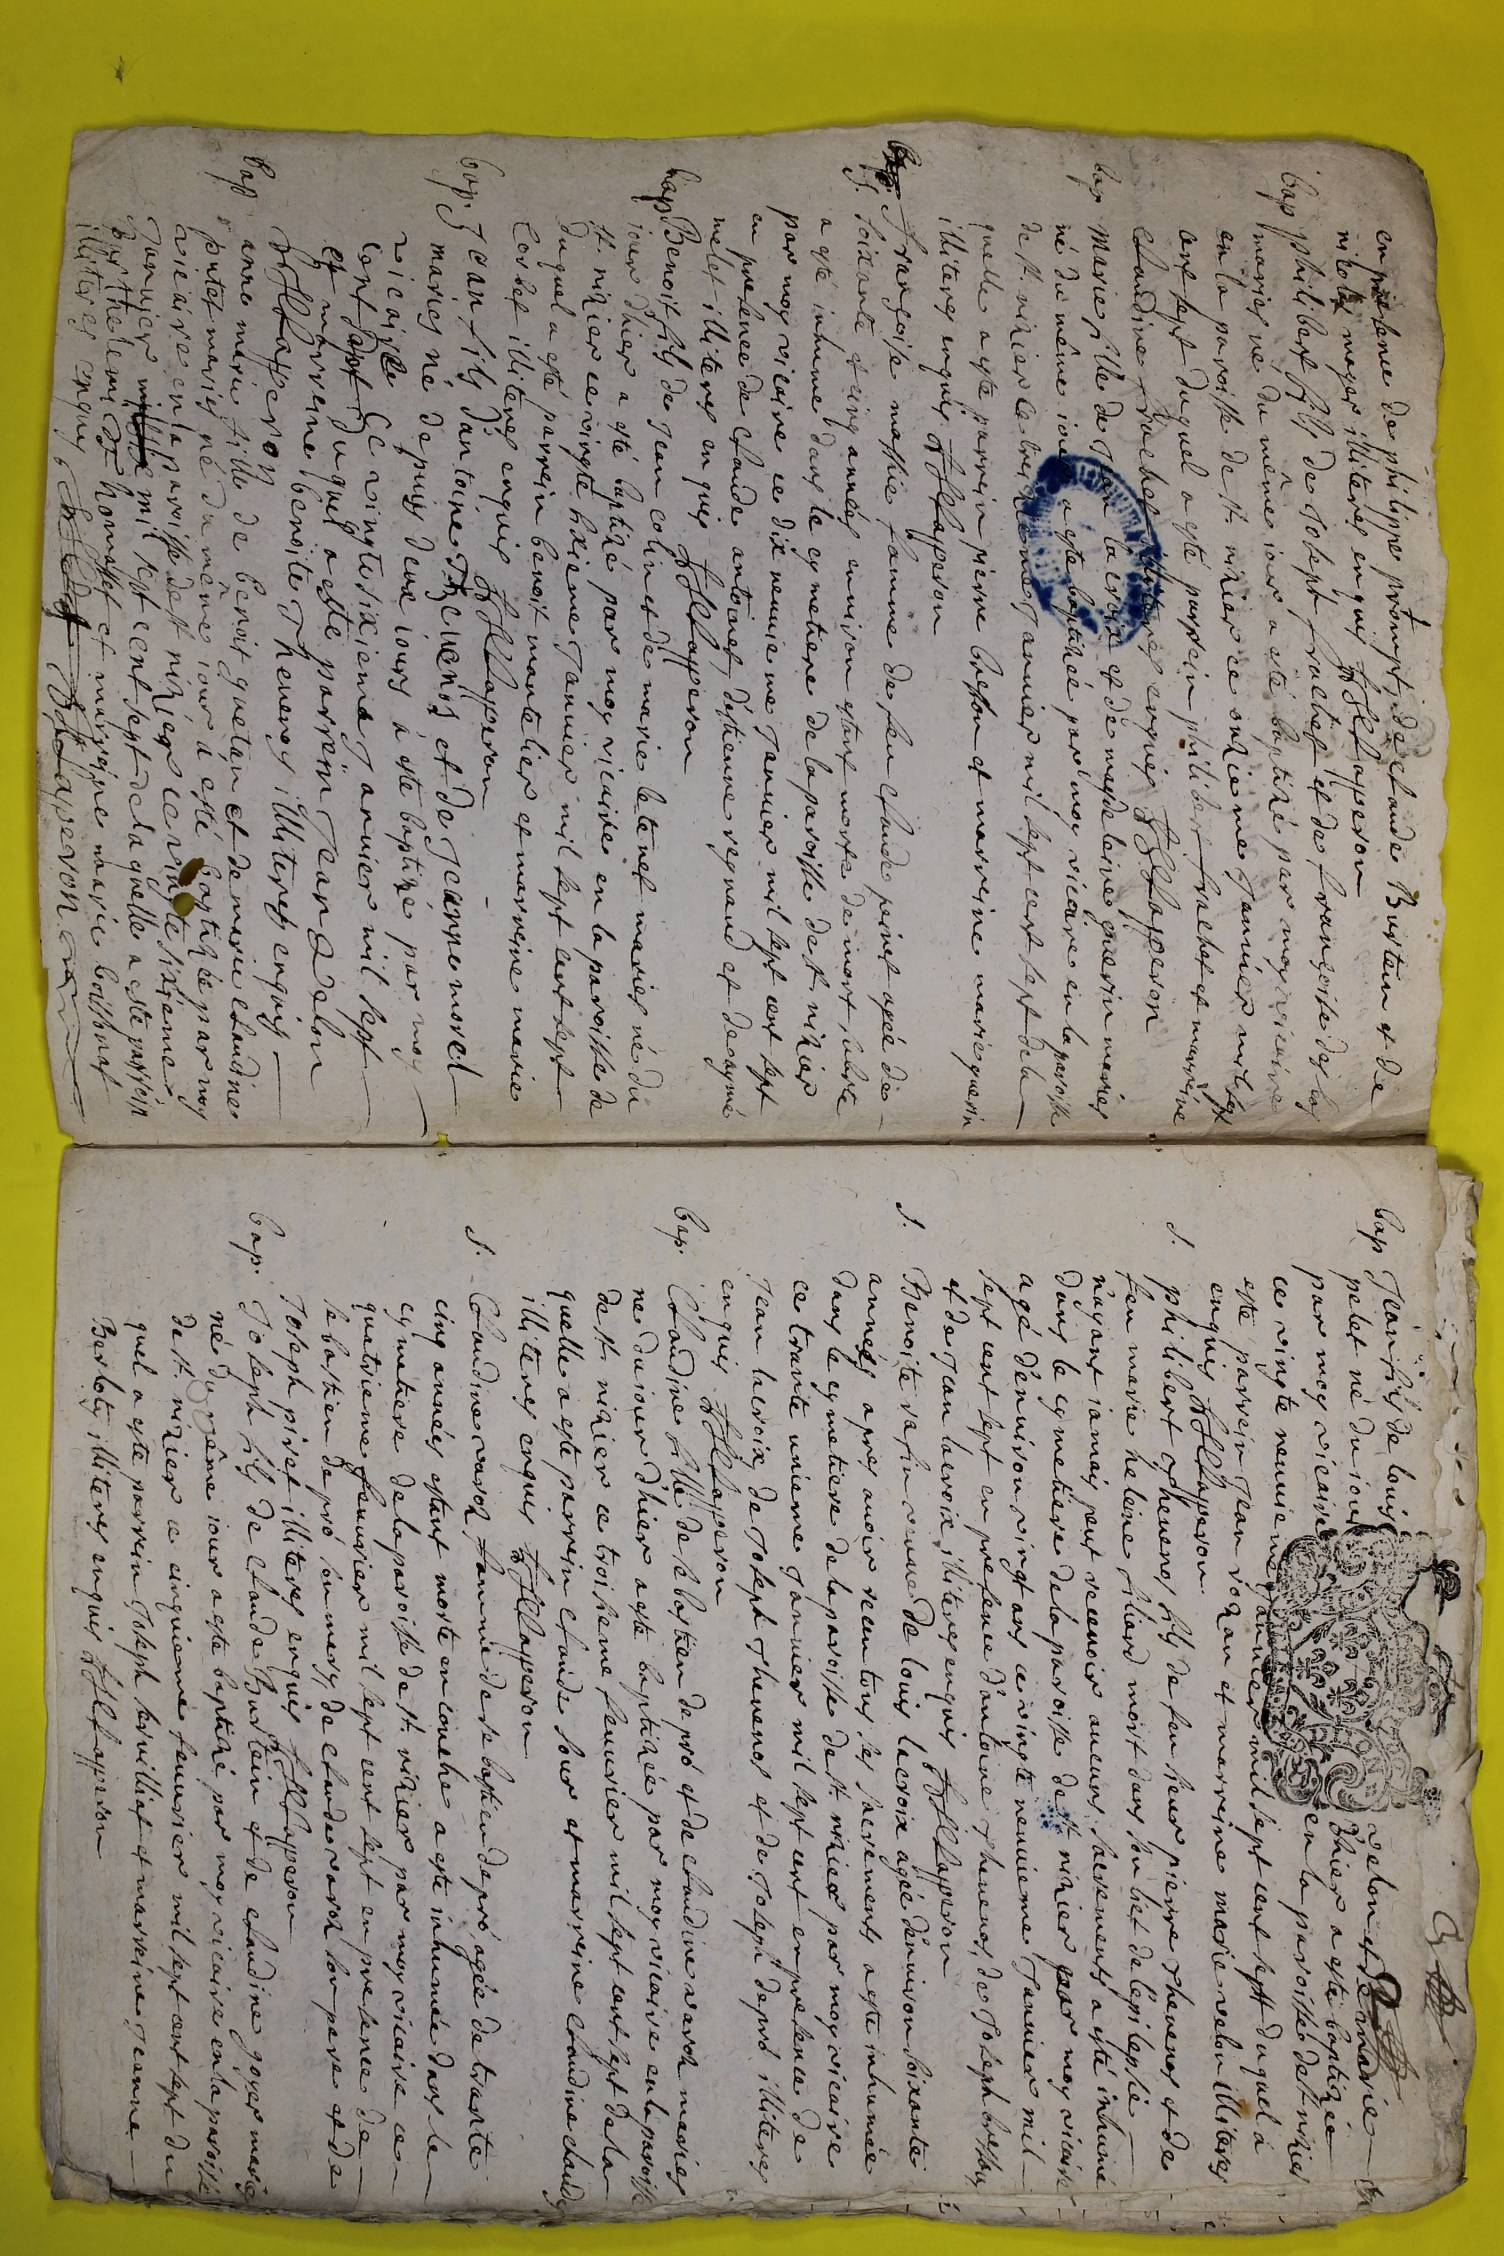 en presence de philippe prompt, de claude Burtin et de
nicolas moyer illiteres enquis JJLapperon
bap philibert fils de Joseph frachet et de françoise
mariés né du même iour a esté baptizé par moy vicaire
en la paroisse de st nizier ce onzieme Janvier mil sept
cent sept duquel a esté parrein philibert frachet et marreine
claudine frachet illiteres enquis JJLapperon
bap Marie fille de Jean lacroix et de magdeleine guerin mariés
né du même iour a esté baptizée par moy vicaire en la paroisse
de st nizier le Janvier mil sept cent sept de la
quelle a esté parrein pierre bresson et marreine marie guerin
illiteres enquis JJLapperon
S. françoise famme de feu claude perret agée de
soixante et cinq années environ estant morte de mort subite
a esté inhumée dans le cymetiere de la paroisse de st nizier
par moy vicaire ce dix neuvieme Janvier mil sept cent sept
en presence de claude antoinet, d'estienne regnaud et de aymé
melet illiteres enquis JJLapperon
bap Benoist fils de Jean colin et de marie mariés né du
iour d'hier a esté baptizé par moy vicaire en la paroisse de
st nizier ce vingte sixieme Janvier mil sept cent sept
duquel a esté parrein benoist mantelier et marreine marie
corbet illiteres enquis JJLapperon
bap. Jean fils d'antoine Thevenos et de Jeanne morel
mariés né depuis deux iours a esté baptizé par moy
vicaire ce vingte sixieme Janvier mil sept
cent sept duquel a esté parrein Jean velon
et marreine benoite Thevenos illiteres enquis
JJLapperon
bap anne marie fille de benoist guetan et de marie claudine
putet mariés né du même iour a esté baptizée par moy
vicaire en la paroisse de st nizier ce vingte sixieme
Janvier mil sept cent sept de laquelle a esté parrein
barthelemi Thomasset et marreine marie boissonat
illiteres enquis JJLapperon
bap Jean fils de louis velon et de marie
pelet né du iour d'hier a esté baptizé
par moy vicaire en la paroisse de st nizier
ce vingte neuvieme Janvier mil sept cent sept duquel a
esté parrein Jean rozan et marreine marie velon illiteres
enquis JJLapperon
S. philibert Thevenos fils de feu sieur pierre Thevenos et de
feu marie heleine filiard mort dans son lict de l'epilepsie
n'ayant iamais peut recevoir aucuns sacrements a esté inhumé
dans le cymetiere de la paroisse de st nizier par moy vicaire
agé d'environ vingt ans ce vingte neuvieme Janvier mil
sept cent sept en presence d'antoine Thevenos, de Joseph bresson
et de Jean lacroix illiteres enquis JJLapperon
S. Benoite veuve de louis lacroix agée d'environ soixante
années apres avoir receu tous ses sacrements a esté inhumée
dans le cymetiere de la paroisse de st nizier par moy vicaire
ce trante unieme Janvier mil sept cent sept en presence de
Jean lacroix, de Joseph Thevenos et de Joseph depró illiteres
enquis JJLapperon
bap. Claudine fille de sebastien depró et de claudine mariés
né du iour d'hier a esté baptizée par moy vicaire en la paroisse
de st nizier ce troisieme fevurier mil sept cent sept de la
quelle a esté parrein claude four et marreine claudine
illiteres enquis JJLapperon
S. Claudine famme de sebastien depró, agée de trante
cinq années estant morte en couche a esté inhumée dans le
cymetiere de la paroisse de st nizier par moy vicaire ce
quatrieme fevurier mil sept cent sept en presence de
sebastien depró son mary, de claude son pere et de
Joseph piret illiteres enquis JJLapperon
bap. Joseph fils de claude Burtin et de claudine goyer mariés
né du même iour a esté baptizé par moy vicaire en la paroisse
de st nizier ce cinquieme fevurier mil sept cent sept du
quel a esté parrein Joseph et marreine Jeanne
illiteres enquis JJLapperon